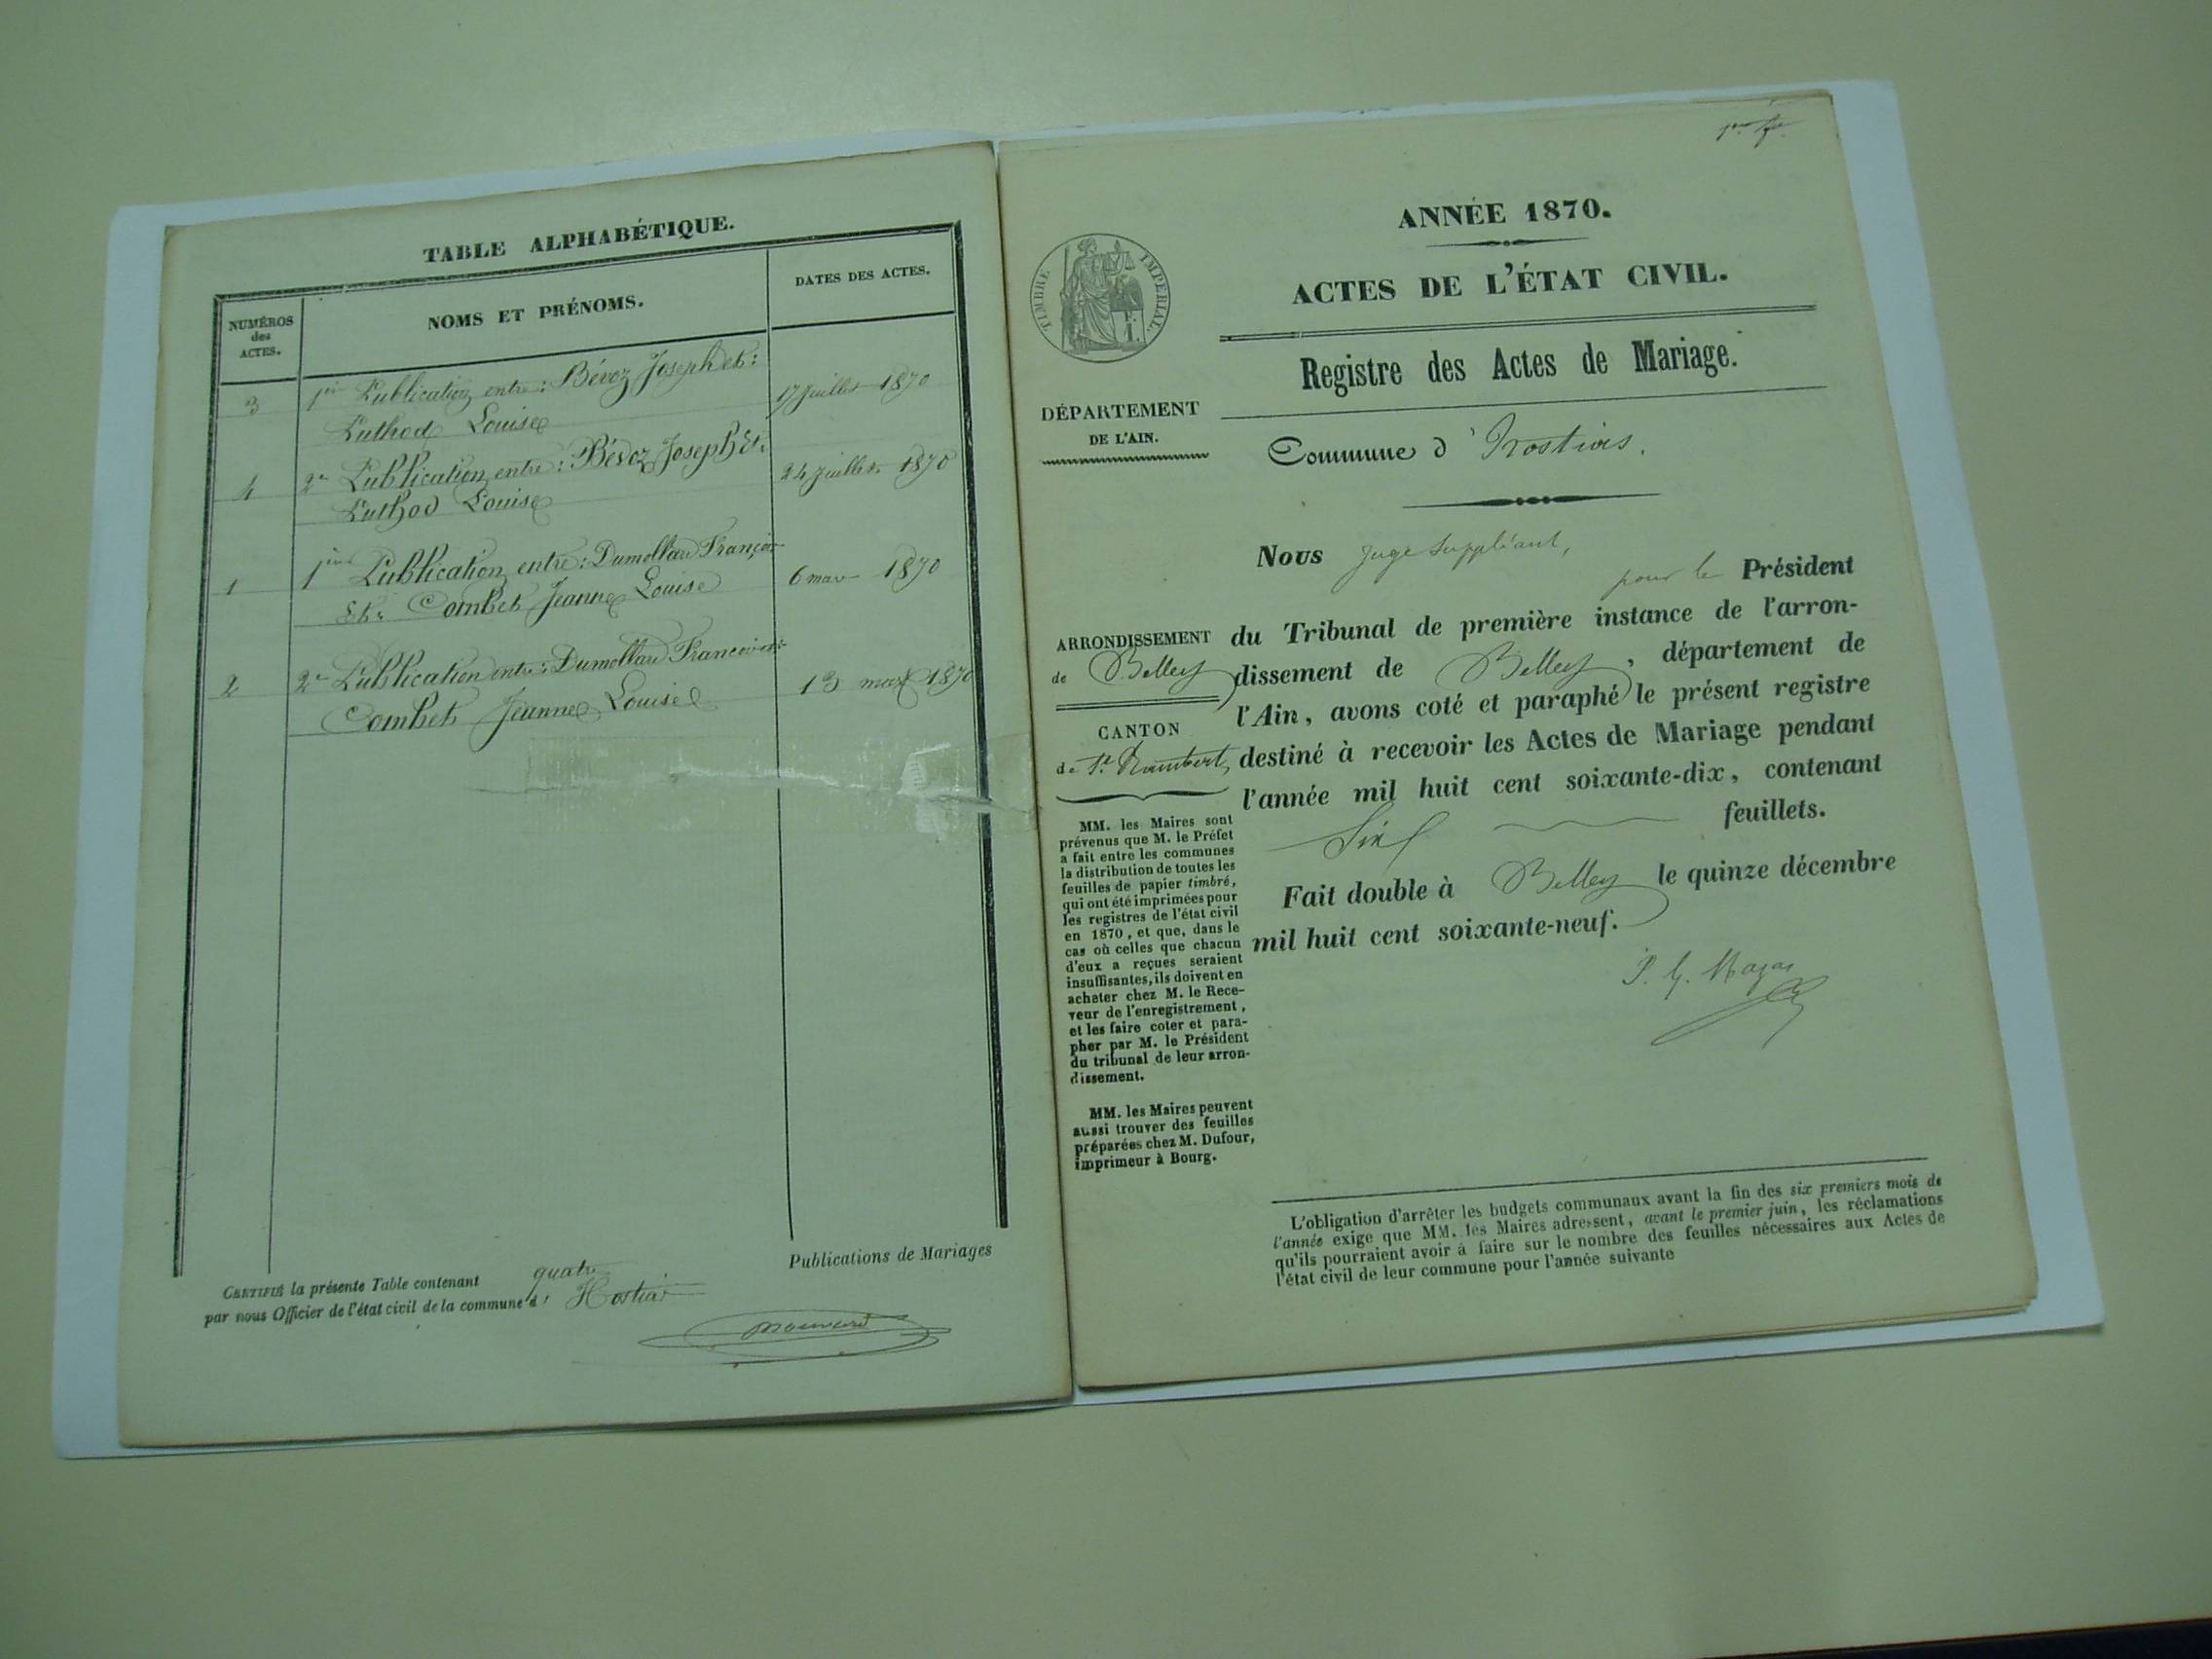 TABLE ALPHABÉTIQUE.
NUMÉROS
des
ACTES.
NOMS ET PRÉNOMS.
DATES DES ACTES.
3 1re Publication entre : Bévoz Joseph et : 17 juillet 1870
Luthod Louise
4 2e Publication entre : Bévoz Joseph Et : 24 juillet 1870
Luthod Louise
1 1re Publication entre : Dumollard François 6 mars 1870
Et : Combet Jeanne Louise
2 2e Publication entre : Dumollard François et 13 mars 1870
Combet Jeanne Louise
CERTIFIÉ la présente Table contenant quatre Publications de Mariages
par nous Officier de l'état civil de la commune d' Hostias
TIMBRE IMPERIAL.
ANNÉE 1870.
ACTES DE L'ÉTAT CIVIL.
Registre des Actes de Mariage.
DÉPARTEMENT
DE L'AIN.
Commune d'Hostias.
ARRONDISSEMENT
de Belley
CANTON
de St. Rambert
MM. les Maires sont
prévenus que M. le Préfet
a fait entre les communes
la distribution de toutes les
feuilles de papier timbré,
qui ont été imprimées pour
les registres de l'état civil
en 1870, et que, dans le
cas où celles que chacun
d'eux a reçues seraient
insuffisantes, ils doivent en
acheter chez M. le Rece-
veur de l'enregistrement,
et les faire coter et para-
pher par M. le Président
du tribunal de leur arron-
dissement.
MM. les Maires peuvent
aussi trouver des feuilles
préparées chez M. Dufour,
imprimeur à Bourg.
Nous juge suppléant,
pour le Président
du Tribunal de première instance de l'arron-
dissement de Belley, département de
l'Ain, avons coté et paraphé le présent registre
destiné à recevoir les Actes de Mariage pendant
l'année mil huit cent soixante-dix, contenant
Six feuillets.
Fait double à Belley le quinze décembre
mil huit cent soixante-neuf.
L'obligation d'arrêter les budgets communaux avant la fin des six premiers mois de
l'année exige que MM. les Maires adressent, avant le premier juin, les réclamations
qu'ils pourraient avoir à faire sur le nombre des feuilles nécessaires aux Actes de
l'état civil de leur commune pour l'année suivante